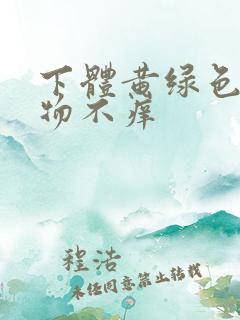 下體黄绿色
物不痒
程浩
未经同意禁止转载